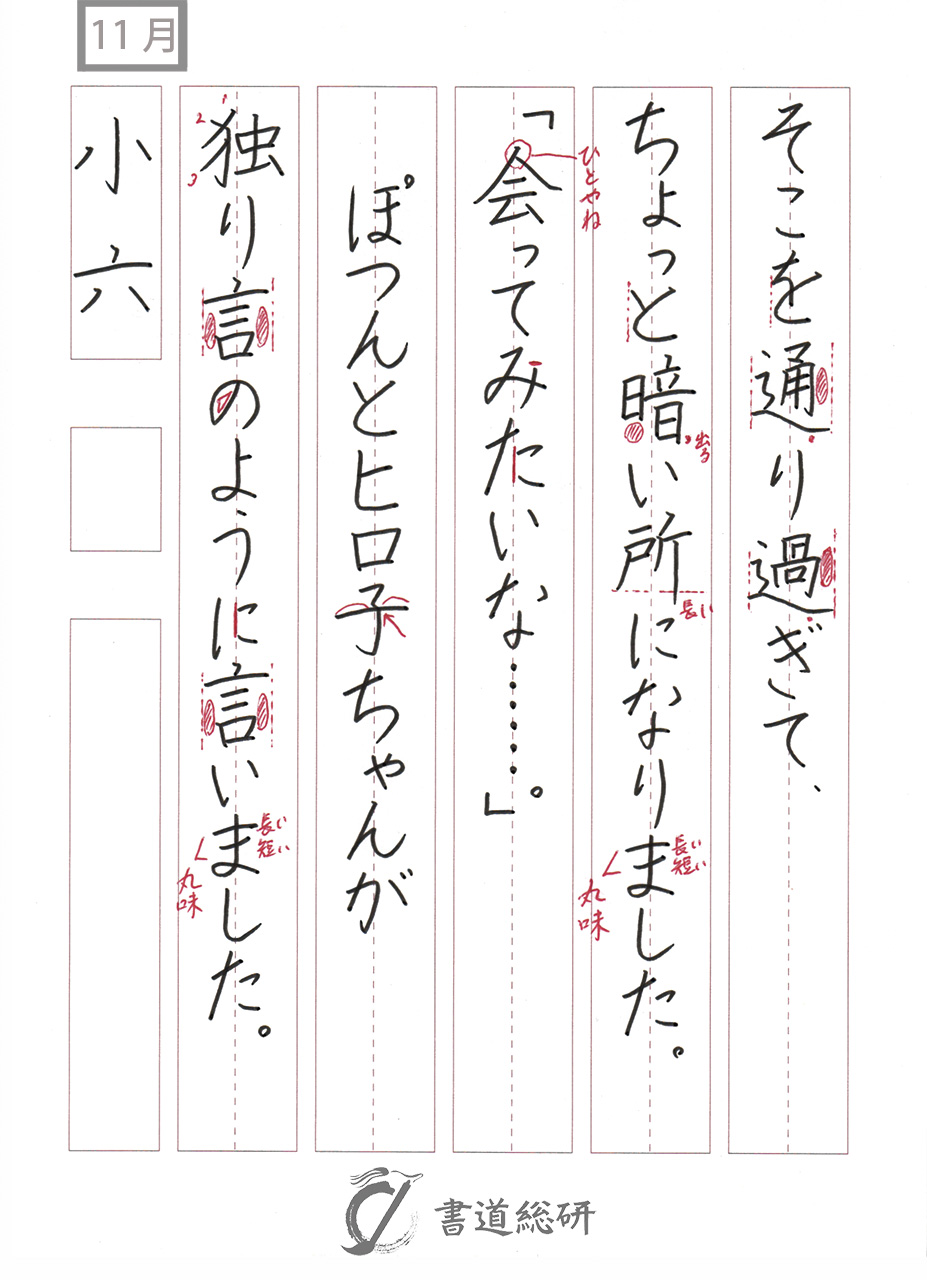 11月
そこを通り過ぎて、
ちょっと暗い所になりました。
出る
長い
長い
短い
丸味
「会ってみたいな………。」
ひとやね
ぽつんとヒロ子ちゃんが
独り言のように言いました。
1
2
3
長い
短い
丸味
小六
書道総研